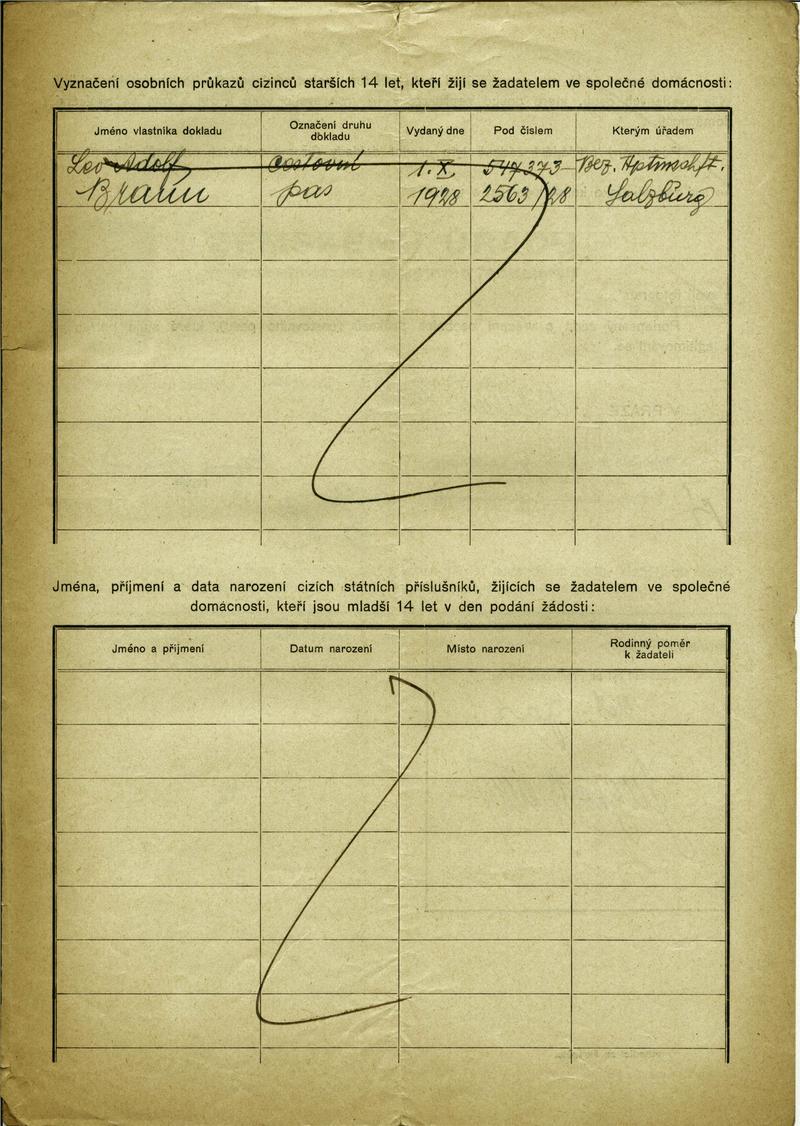 Vyznačení osobních průkazů cizinců starších 14 let, kteří žijí se žadatelem ve společné domácnosti:
Jméno vlastníka dokladu
Označení druhu dokladu
Vydaný dne
Pod číslem
Kterým úřadem
Leo Adolf cestovní 1. X. 547373 Bez. Hptmschft.
Braun pas 1928 2563/28 Salzburg
Jména, příjmení a data narození cizích státních příslušníků, žijících se žadatelem ve společné
domácnosti, kteří jsou mladší 14 let v den podání žádosti:
Jméno a příjmení
Datum narození
Místo narození
Rodinný poměr
k žadateli